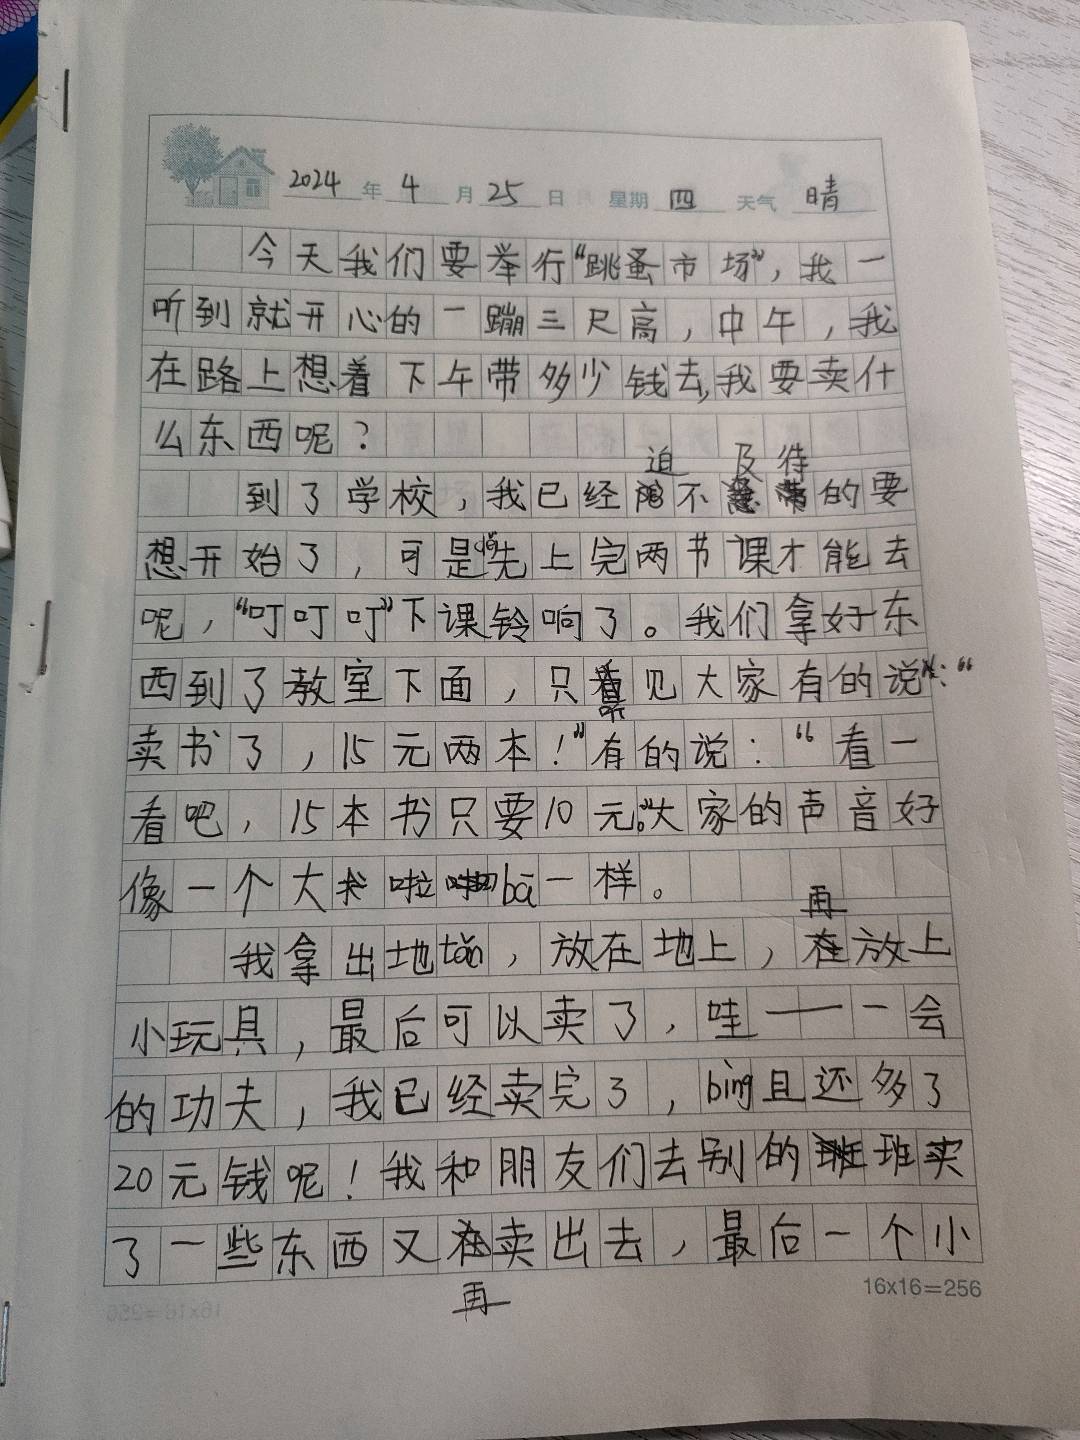 2024年4月25日 星期四 天气 晴
今天我们要举行“跳蚤市场”，我一
听到就开心的一蹦三尺高，中午，我
在路上想着下午带多少钱去，我要卖什
么东西呢？
迫 及待
到了学校，我已经不的要
想开始了，可是先上完两节课才能去
呢，“叮叮叮”下课铃响了。我们拿好东
西到了教室下面，只听见大家有的说：“
卖书了，15元两本！”有的说：“看一
看吧，15本书只要10元。”大家的声音好
像一个大啦bā一样。
再
我拿出地tǎn，放在地上，放上
小玩具，最后可以卖了，哇——一会
的功夫，我已经卖完了，bìng且还多了
20元钱呢！我和朋友们去别的班买
了一些东西又卖出去，最后一个小
再
16x16=256